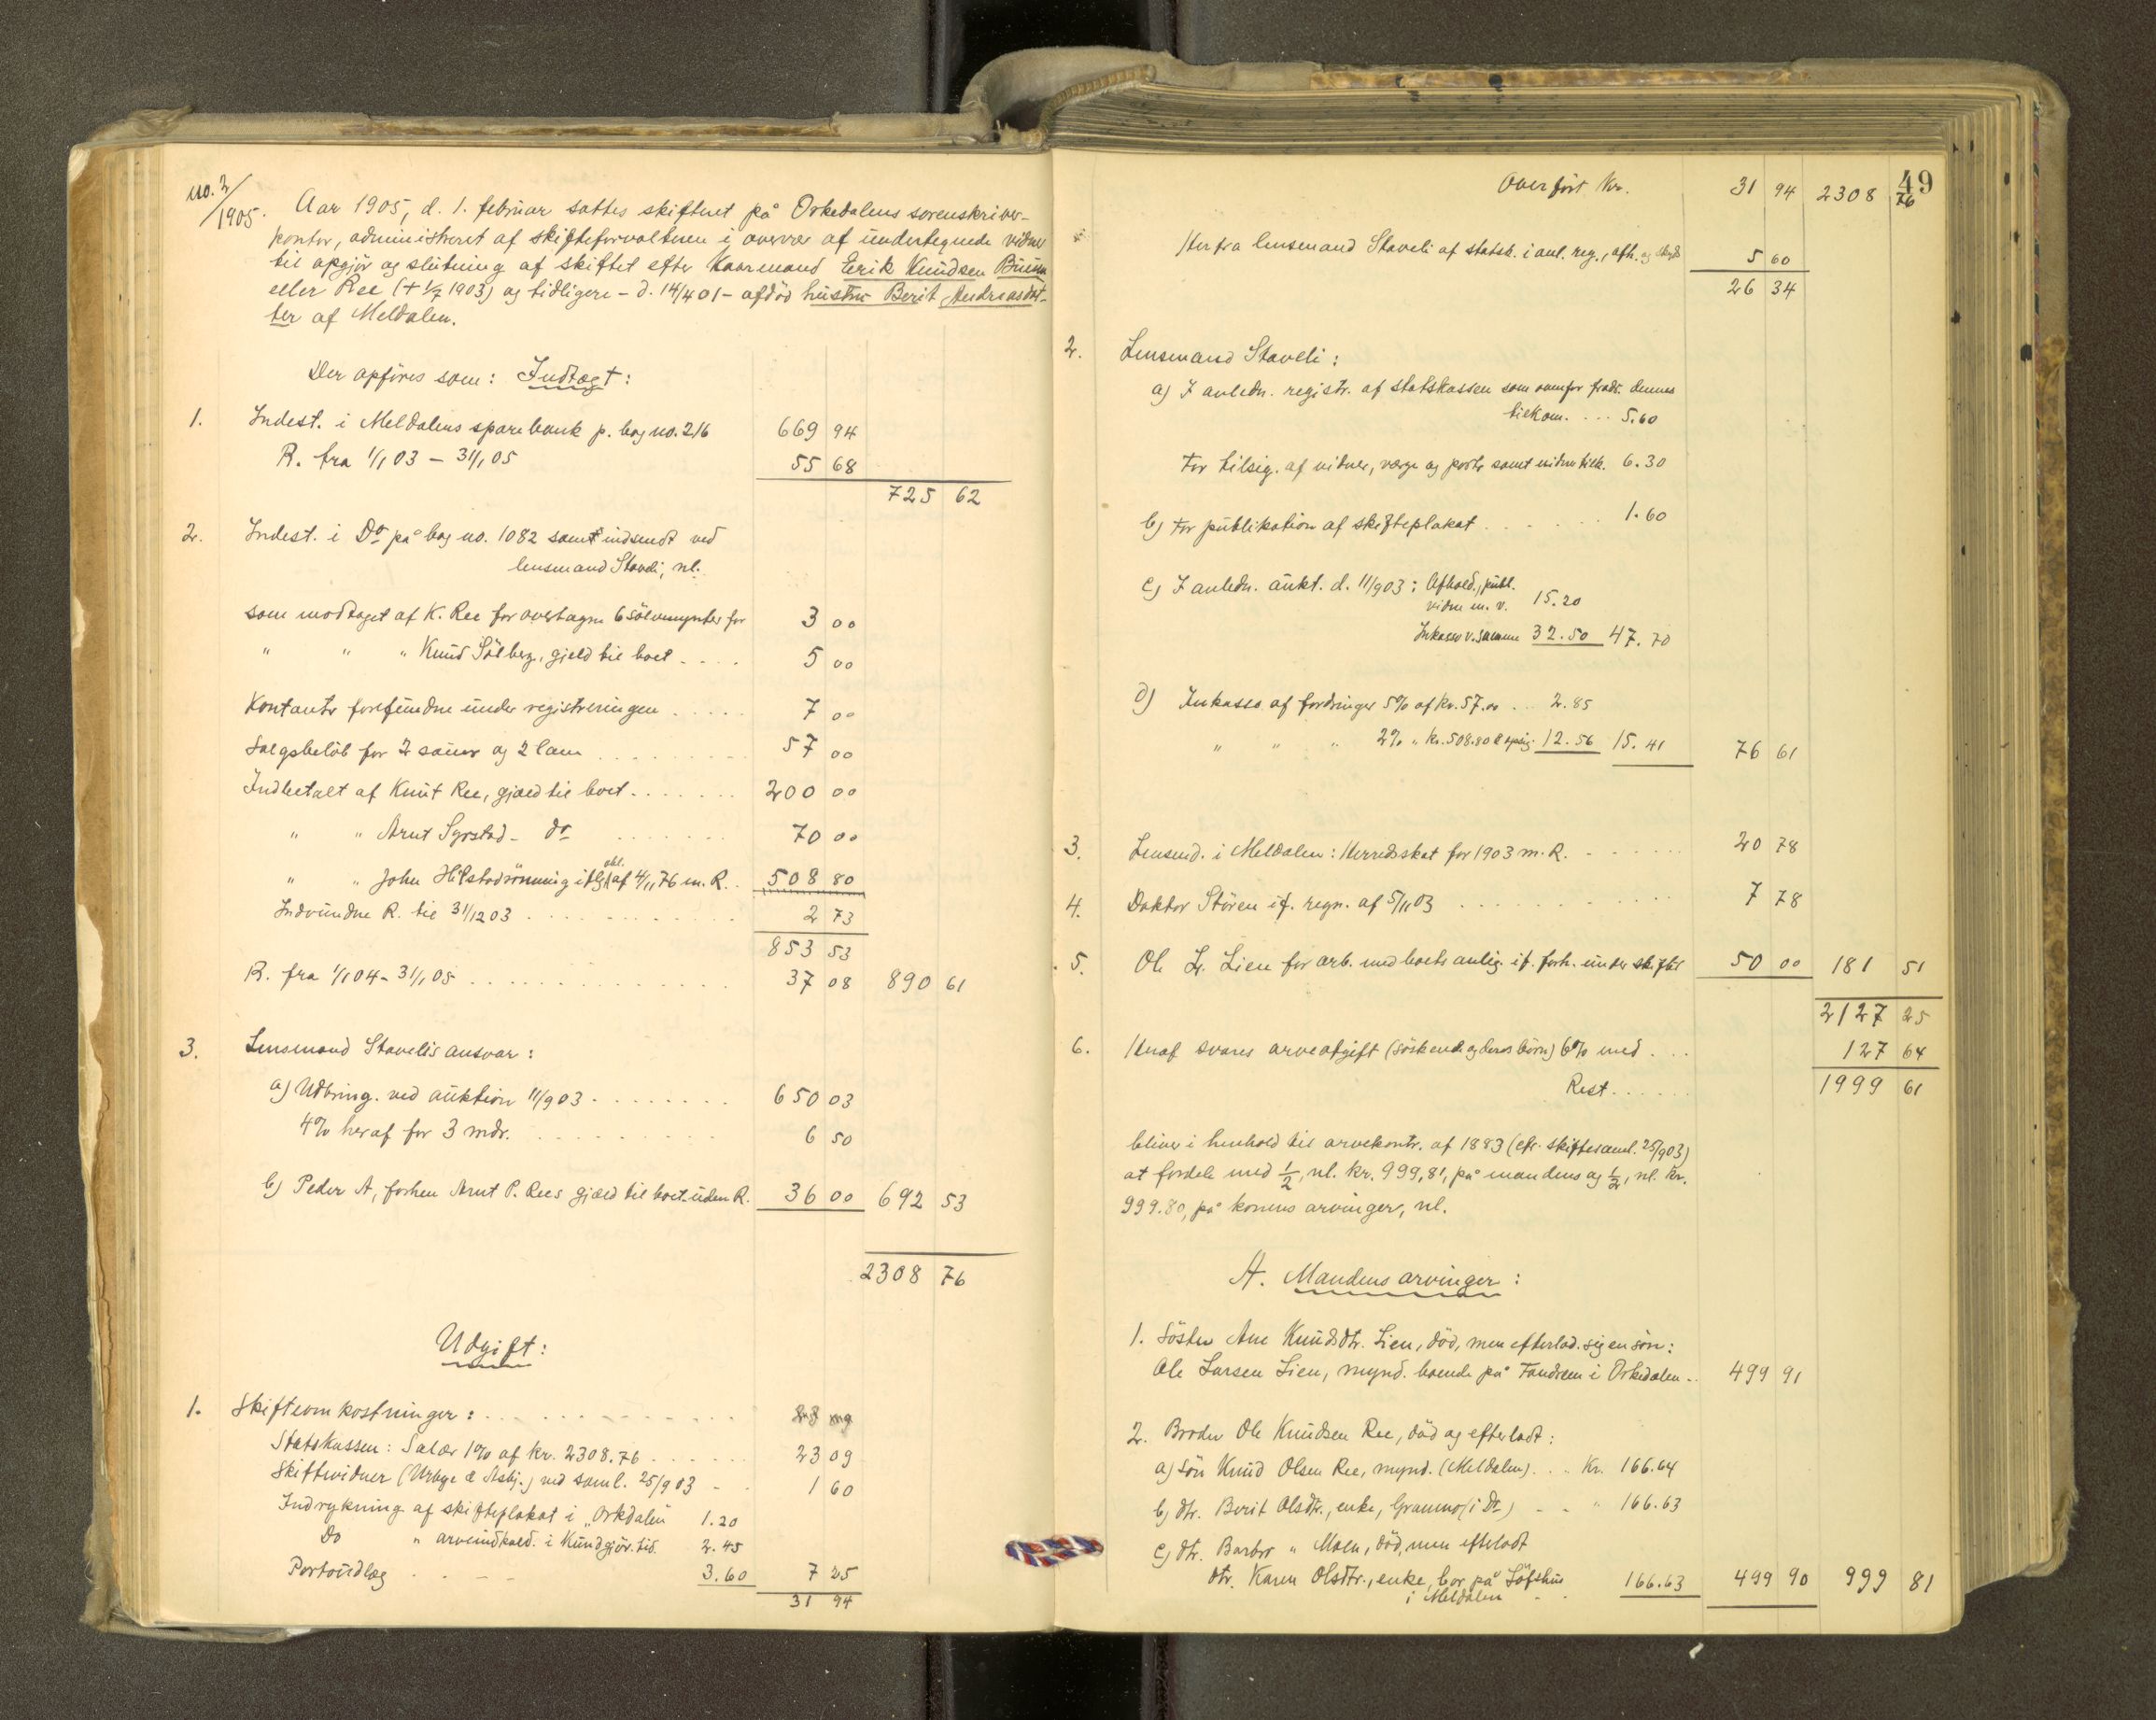 no. 2/1905.
Aar 1905, d. 1. februar sattes skifteret på Orkedalens sorenskriver-
kontor, administreret af skifteforvalteren i overvær af undertegnede vidner
til opgjör og slutning af skiftet efter Kaarmand Erik Knudsen Bruun
eller Ree (+ 1/7 1903) og tidligere - d. 14/4 01 - afdöd hustru Berit Andreasdat-
ter af Meldalen.
Der opföres som: Indtægt:
1. Indest. i Meldalens sparebank p. bog no. 216 669 94
R. fra 1/1 03 - 31/1 05 55 68
725 62
2. Indest. i Do på bog no. 1082 samt indsendt ved
lensmand Staveli, nl.
som modtaget af K. Ree for overtagne 6 sölvmynter for 3 00
" " " Knud Sölberg, gjeld til boet .... 5 00
Kontanter forefundne under registreringen ..... 7 00
Salgsbelöb for 2 sauer og 2 lam ......... 57 00
Indbetalt af Knut Ree, gjæld til boet ....... 200 00
" " Arnt Syrstad - do ....... 70 00
" " John Hilstadrönning iflg. obl. af 4/11 76 m. R. . 508 80
Indvundne R. til 31/12 03 ............ 2 73
853 53
R. fra 1/1 04 - 31/1 05 .............. 37 08 890 61
3. Lensmand Stavelis ansvar:
a) Udbring. ved auktion 11/9 03 ........ 650 03
4% heraf for 3 mdr. .......... 6 50
b) Peder A, forhen Arnt P. Rees gjæld til boet uden R. 36 00 692 53
2308 76
Udgift:
1. Skifteomkostninger: .............
Statskassen: Salær 1% af kr. 2308.76 ...... 23 09
Skiftevidner (Urbye & Asbj.) ved saml. 25/9 03 - - 1 60
Indrykning af skifteplakat i "Orkdalen" 1.20
Do " arveindkald. i Kundgjör. tid. 2.45
Portoudlæg . - - - 3.60 7 25
31 94
49
Overfört Kr. 31 94 2308 76
Herfra lensmand Staveli af statsk. i anl. reg., afh. og 5 60
26 34
2. Lensmand Staveli:
a) I anledn. registr. af statskassen som ovenfor fradr. dennes
tilkom. ... 5.60
For tilsig. af vidner, værge og porto samt vidnetilk. 6.30
b) For publikation af skifteplakat ....... 1.60
c) I anledn. aukt. d. 11/9 03: Afhold., publ.
vidne m. v. 15.20
Inkasso v. samme 32.50 47.70
d) Inkasso af fordringer 5% af kr. 57.00 ... 2.85
" " " 2% " kr. 508.80 & opsig. 12.56 15.41 76 61
3. Lensmd. i Meldalen: Herredsskat for 1903 m. R. ....... 20 78
4. Doktor Stören if. regn. af 5/11 03 ........... 7 78
5. Ole L. Lien for arb. med boets anlig. if. forh. under skiftet 50 00 181 51
2127 25
6. Heraf svares arveafgift (söskende og deres börn) 6% med ... 127 64
Rest ...... 1999 61
bliver i henhold til arvekontr. af 1883 (cfr. skiftesaml. 25/9 03)
at fordele med 1/2, nl. kr. 999,81, på mandens og 1/2, nl. kr.
999.80, på konens arvinger, nl.
A. Mandens arvinger:
1. Söster Ane Knudsdtr. Lien, död, men efterlod. sig en sön:
Ole Larsen Lien, mynd. boende på Fandrem i Orkedalen .. 499 91
2. Broder Ole Knudsen Ree, död og efterladt:
a) Sön Knud Olsen Ree, mynd. (Meldalen) ... Kr. 166.64
b) dtr. Berit Olsdtr., enke, Gramno (i Do) - - " 166.63
c) dtr. Barbro " Moen, död, men efterladt
dtr. Karen Olsdtr., enke, bor på Löfshus
i Meldalen - . 166.63 499 90 999 81